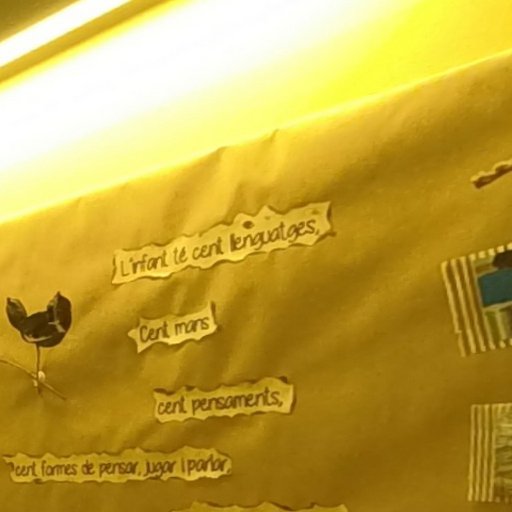 L'infant té cent llenguatges,
Cent mans
cent pensaments,
cent formes de pensar, jugar i parlar,